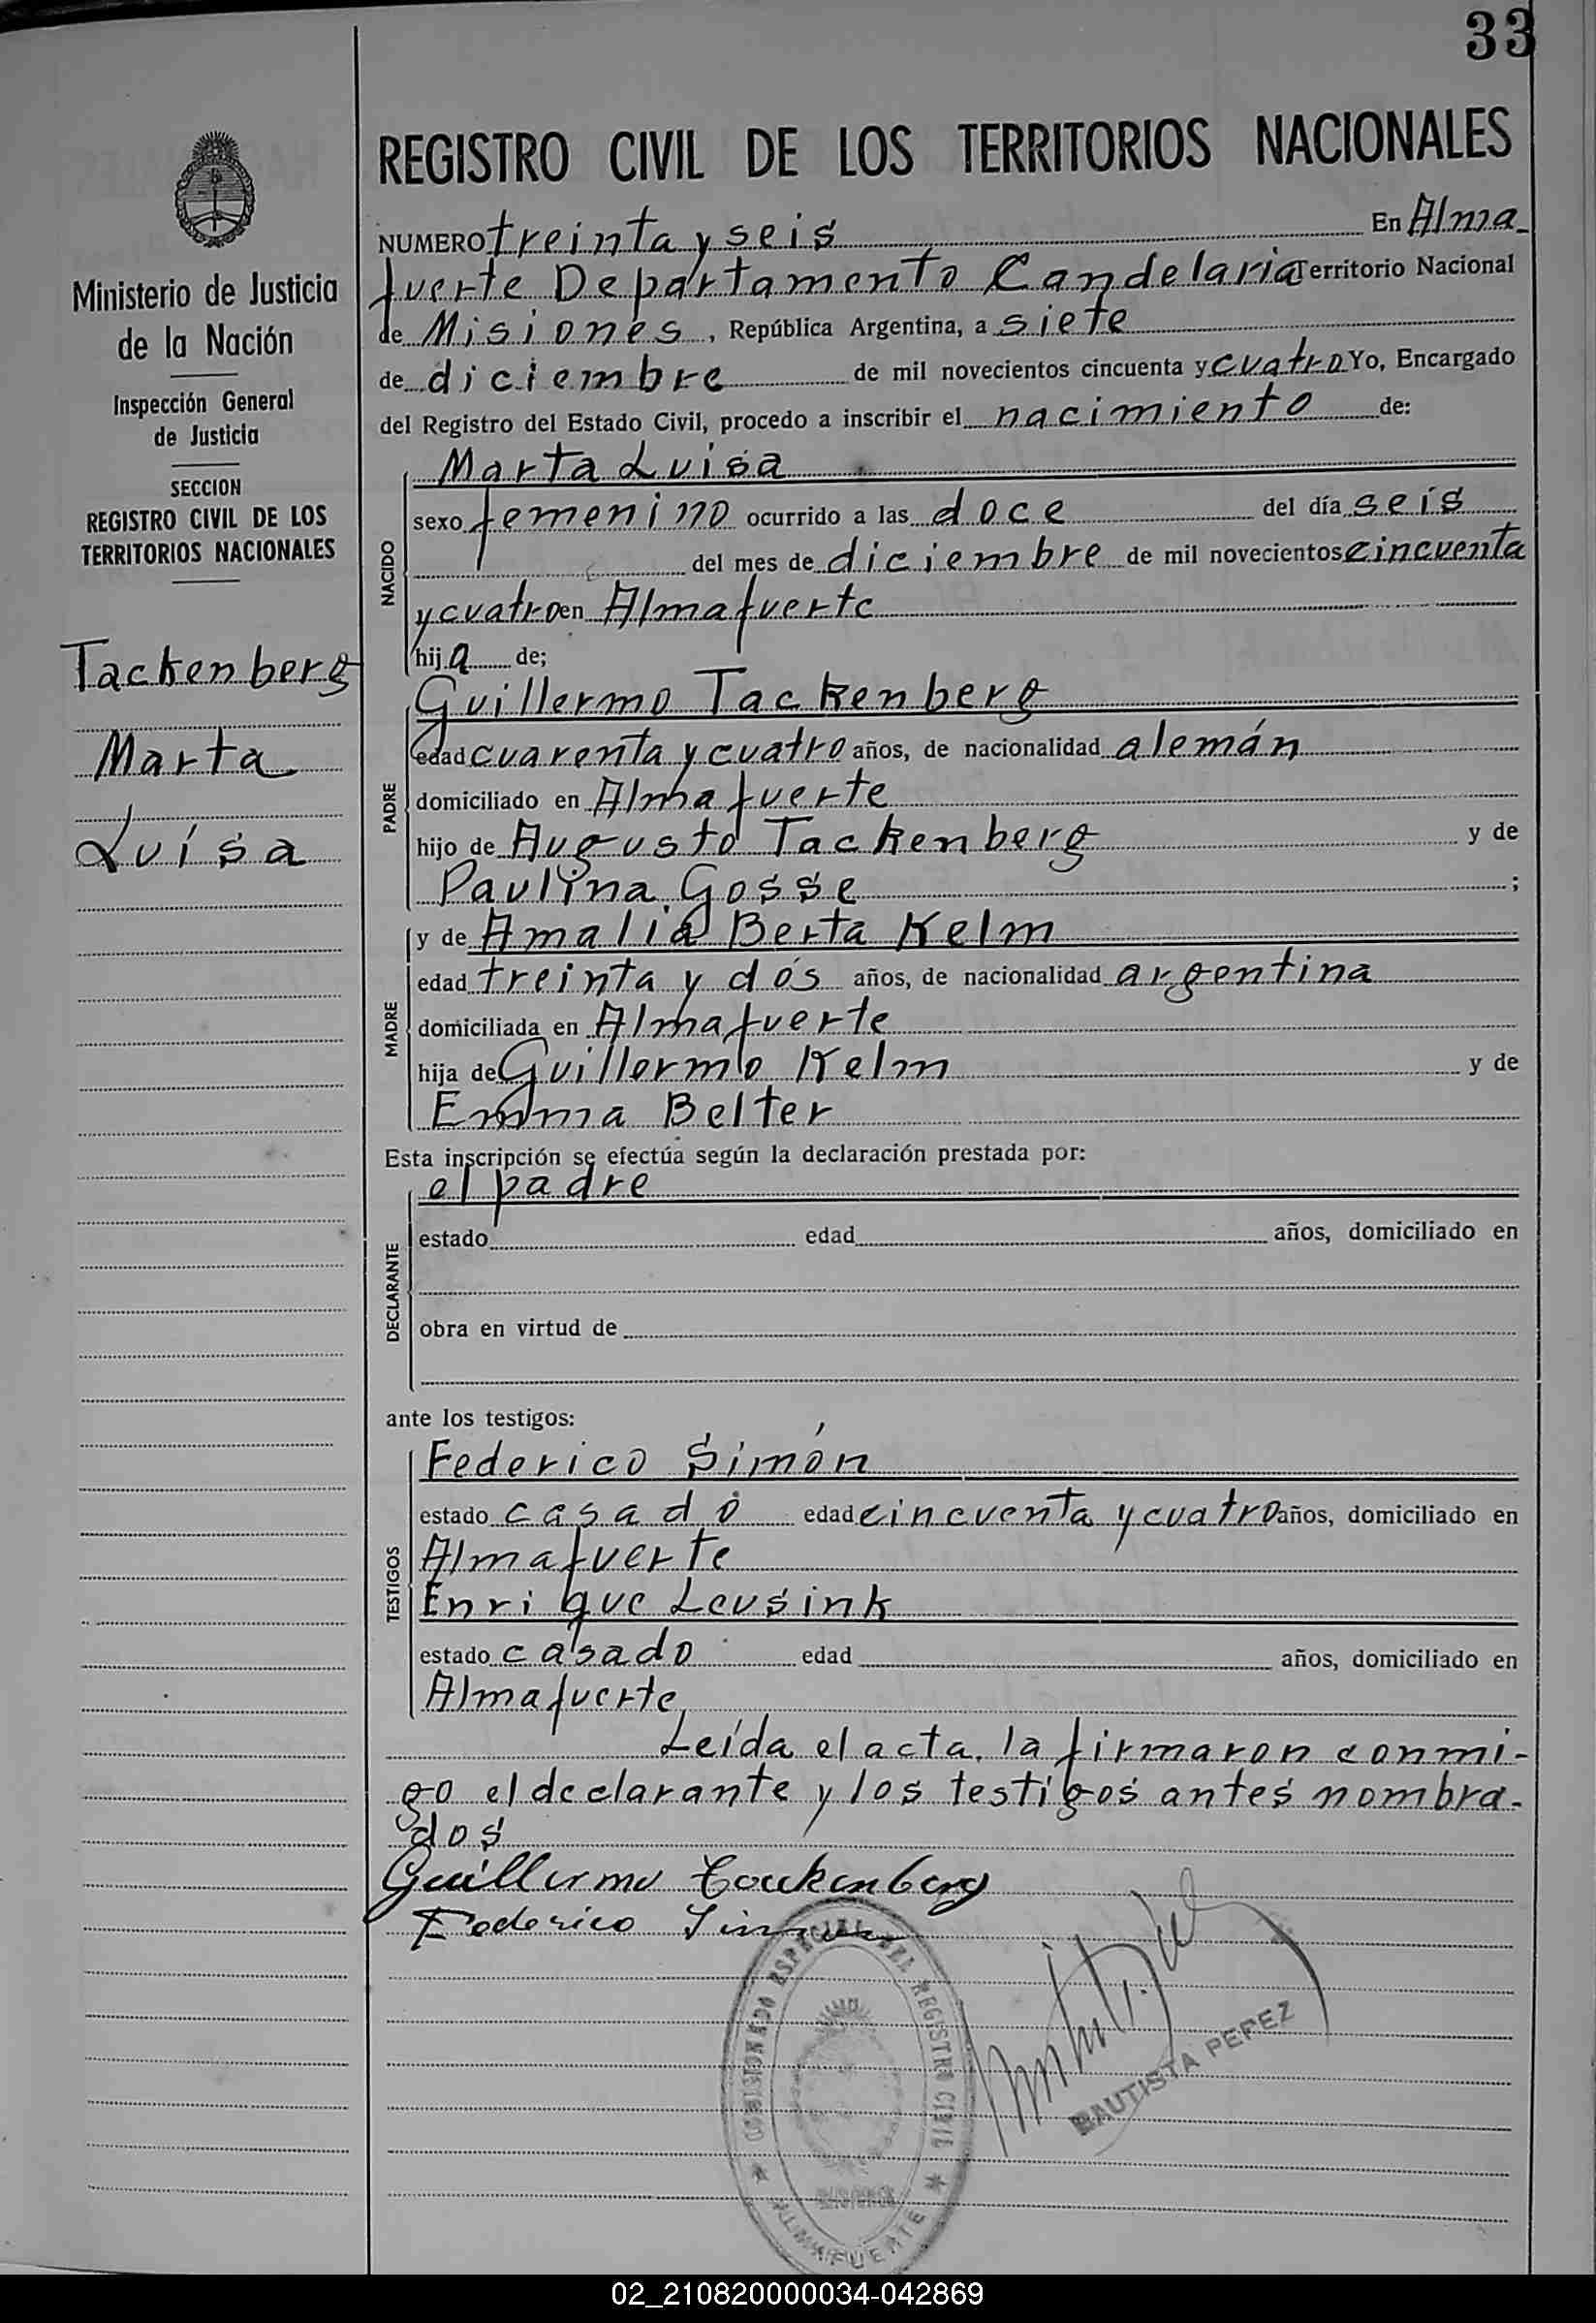 33
REGISTRO CIVIL DE LOS TERRITORIOS NACIONALES
Ministerio de Justicia
de la Nación
Inspección General
de Justicia
SECCION
REGISTRO CIVIL DE LOS
TERRITORIOS NACIONALES
Tackenberg
Marta
Luisa
NUMERO treinta y seis En Alma
fuerte Departamento Candelaria Territorio Nacional
de Misiones, República Argentina, a siete
de diciembre de mil novecientos cincuenta y cuatro Yo, Encargado
del Registro del Estado Civil, procedo a inscribir el nacimiento de:
NACIDO
Marta Luisa
sexo femenino ocurrido a las doce del día seis
del mes de diciembre de mil novecientos cincuenta
y cuatro en Almafuerte
hija de;
PADRE
Guillermo Tackenberg
edad cuarenta y cuatro años, de nacionalidad alemán
domiciliado en Almafuerte
hijo de Augusto Tackenberg y de
Paulina Gosse ;
MADRE
y de Amalia Berta Kelm
edad treinta y dos años, de nacionalidad argentina
domiciliada en Almafuerte
hija de Guillermo Kelm y de
Emma Belter
Esta inscripción se efectúa según la declaración prestada por:
DECLARANTE
el padre
estado edad años, domiciliado en
obra en virtud de
ante los testigos:
TESTIGOS
Federico Simón
estado casado edad cincuenta y cuatro años, domiciliado en
Almafuerte
Enrique Leusink
estado casado edad años, domiciliado en
Almafuerte
Leída el acta, la firmaron conmi-
go el declarante y los testigos antes nombra-
dos
Guillermo Tackenberg
Federico Simon
COMISIONADO ESPECIAL DEL REGISTRO CIVIL
MISIONES
ALMAFUERTE
BAUTISTA PEREZ
02_210820000034-042869